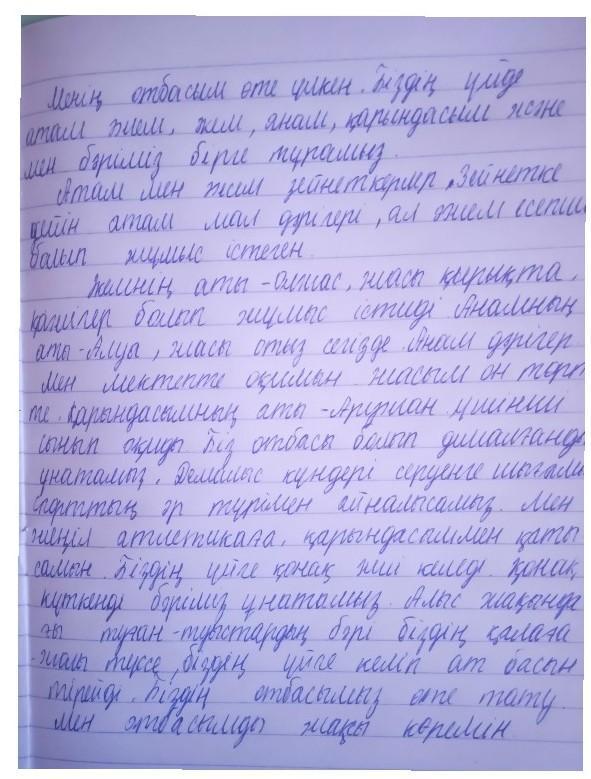 Менің отбасым өте үлкен. Біздің үйде
атам әжем, әкем, анам, қарындасым және
мен бәріміз бірге тұрамыз.
Атам мен әжем зейнеткерлер. Зейнетке
дейін атам мал дәрігері, ал әжем есепші
болып жұмыс істеген.
Әкемнің аты - Олжас, жасы қырықта,
кәсіпкер болып жұмыс істиді Анамның
аты - Алуа, жасы отыз сегізде. Анам дәрігер.
Мен мектепте оқимын жасым он төрт
те. Қарындасымның аты - Аружан үшінші
сынып оқиды. Біз отбасы болып дималғанды
ұнатамыз. Демалыс күндері серуенге шығамыз
спорттың әр түрімен айналысамыз. Мен
жеңіл атлетикаға, қарындасыммен қаты
самын. Біздің үйге қонақ жиі келеді. Қонақ
күткенді бәріміз ұнатамыз. Алыс жақында
ғы туған-туыстардың бәрі біздің қалаға
жолы түссе, біздің үйге келіп ат басын
тірейді. Біздің отбасымыз өте тату.
Мен отбасымды жақсы көремін